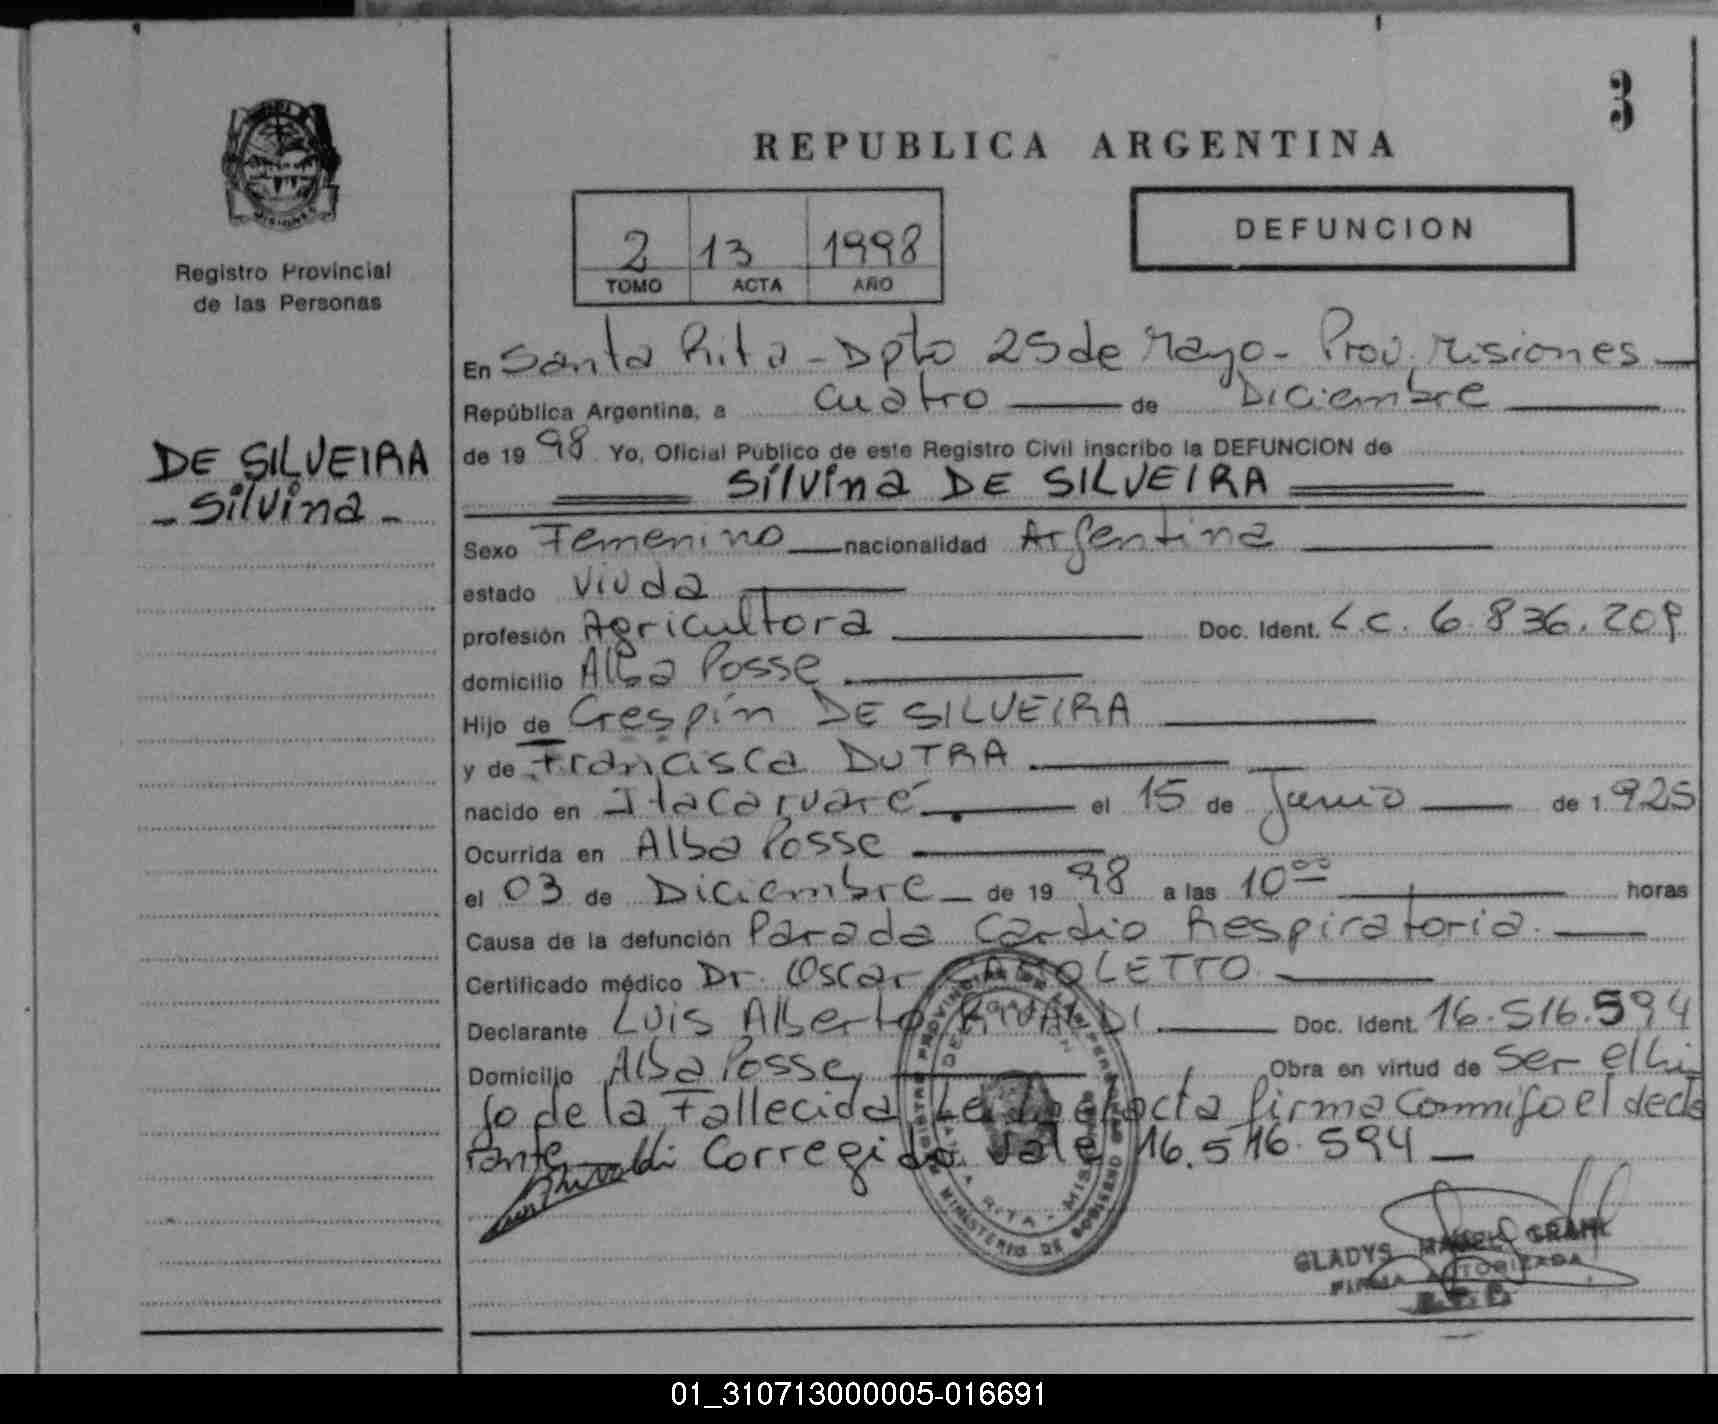 3
REPUBLICA ARGENTINA
DEFUNCION
2 13 1998
TOMO ACTA AÑO
MISIONES
Registro Provincial
de las Personas
DE SILVEIRA
- Silvina -
En Santa Rita - Dpto 25 de Mayo - Prov. Misiones
República Argentina, a cuatro de Diciembre
de 1998 Yo, Oficial Público de este Registro Civil inscribo la DEFUNCION de
Silvina DE SILVEIRA
Sexo Femenino nacionalidad Argentina
estado Viuda
profesión Agricultora Doc. Ident. L.C. 6.836.209
domicilio Alba Posse
Hijo de Crespín DE SILVEIRA
y de Francisca DUTRA
nacido en Itacaruaré el 15 de Junio de 1.925
Ocurrida en Alba Posse
el 03 de Diciembre de 1998 a las 10 00 horas
Causa de la defunción Parada Cardio Respiratoria.
Certificado médico Dr. Oscar
Declarante Luis Alberto RIVALDI Doc. Ident. 16.516.594
Domicilio Alba Posse, Obra en virtud de Ser el hi
jo de la Fallecida Leída el acta firma Conmigo el decla
rante Corregido Vale 16.516.594
GLADYS
FIRMA AUTORIZADA
01_310713000005-016691